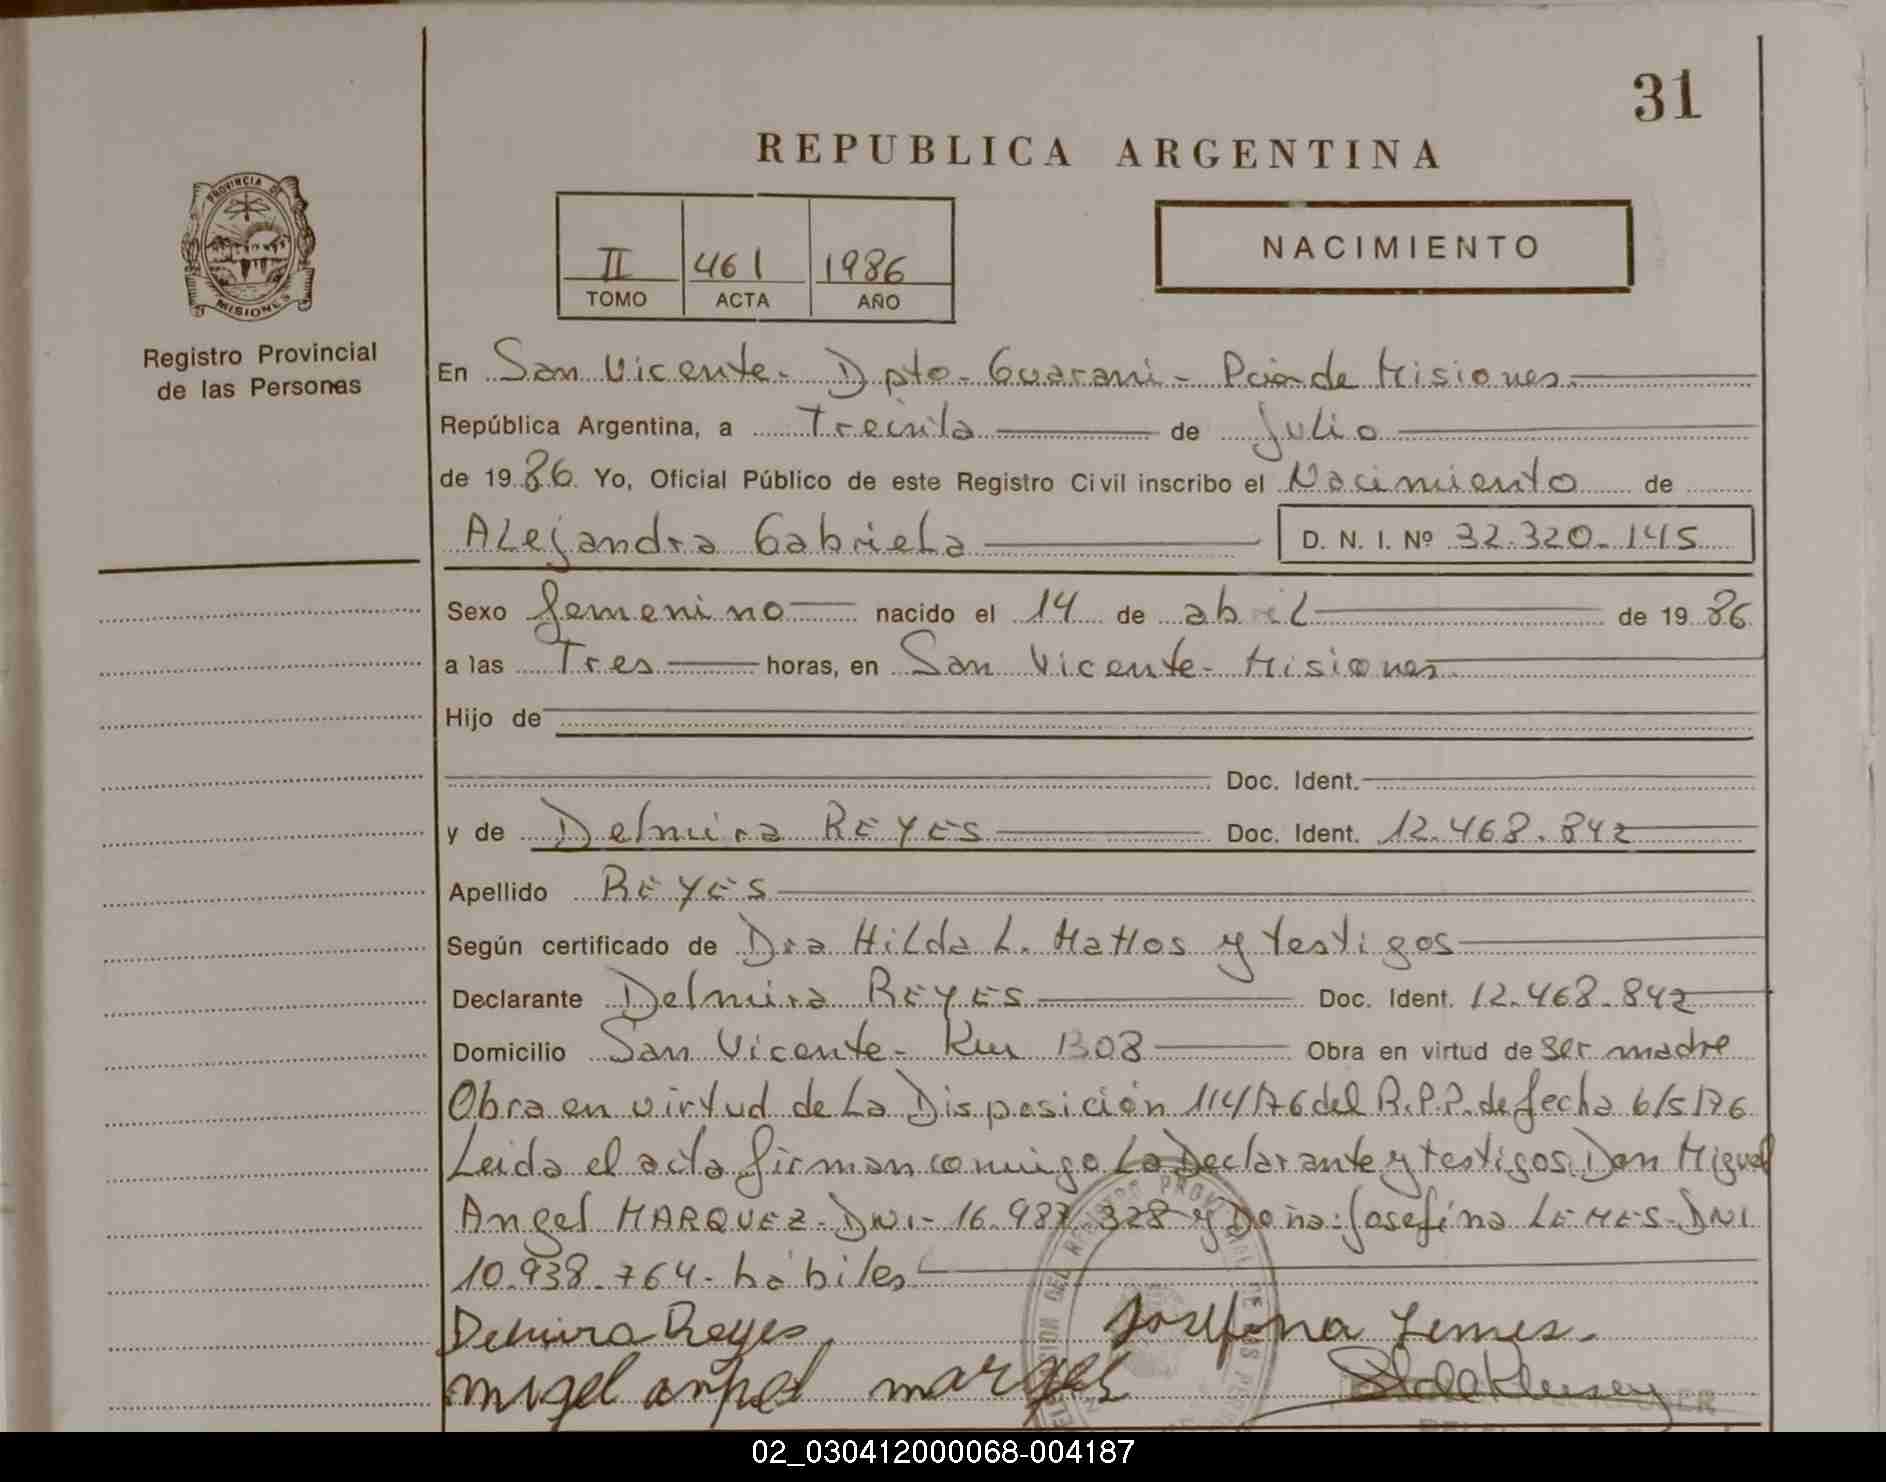 31
REPUBLICA ARGENTINA
PROVINCIA DE
MISIONES
Registro Provincial
de las Personas
II 461 1986
TOMO ACTA AÑO
NACIMIENTO
En San Vicente - Dpto - Guarani - Pcia de Misiones
República Argentina, a Treinta de Julio
de 1986 Yo, Oficial Público de este Registro Civil inscribo el Nacimiento de
Alejandra Gabriela D. N. I. Nº 32.320.145
Sexo femenino nacido el 14 de abril de 1986
a las Tres horas, en San Vicente - Misiones
Hijo de
Doc. Ident.
y de Delmira REYES Doc. Ident. 12.468.842
Apellido REYES
Según certificado de Dra Hilda L. Mattos y testigos
Declarante Delmira REYES Doc. Ident. 12.468.842
Domicilio San Vicente - Km 1308 Obra en virtud de ser madre
Obra en virtud de la Disposición 114/76 del R.P.P. de fecha 6/5/76
Leida el acta firman conmigo la Declarante y testigos Don Miguel
Angel MARQUEZ - DNI - 16.987.328 y Doña: Josefina LEMES - DNI
10.938.764 - hábiles
Delmira Reyes Josefina Lemes
migel anjel marqes
02_030412000068-004187